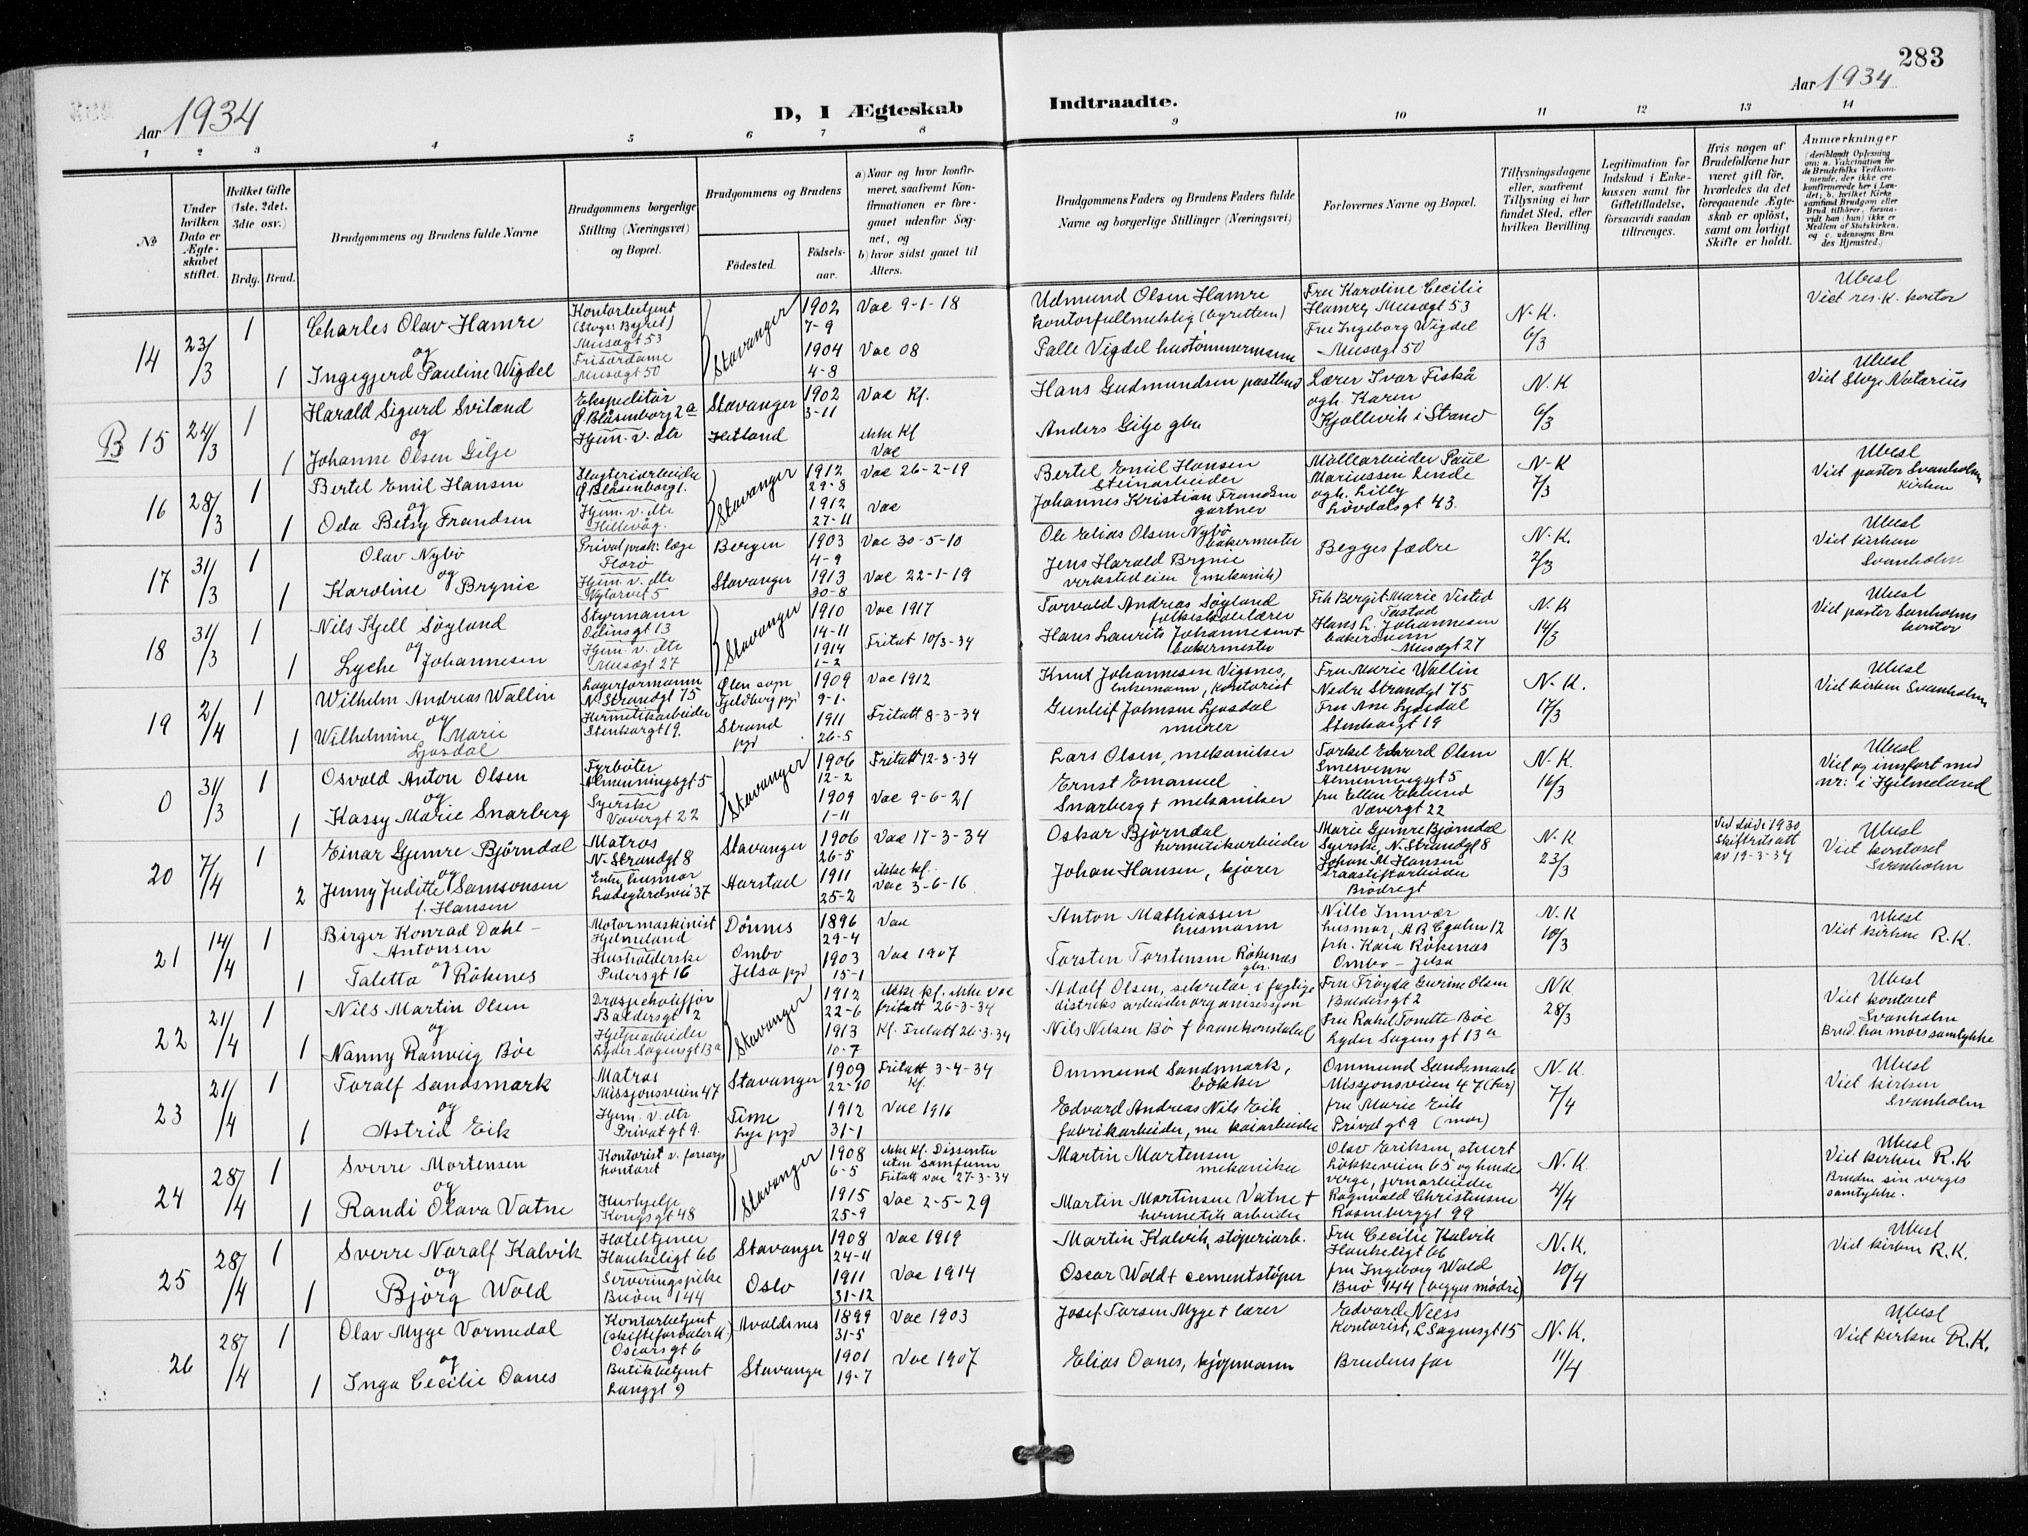 283
Aar 1934
D, I Ægteskab
Indtraadte.
Aar 1934
1 2 3 4 5 6 7 8 9 10 11 12 13 14
No
Under hvilken Dato er Ægteskabet stiftet.
Hvilket Gifte (1ste, 2det, 3die osv.)
Brdg. Brud.
Brudgommens og Brudens fulde Navne
Brudgommens borgerlige Stilling (Næringsvei) og Bopæl.
Brudgommens og Brudens
Födested.
Födsels-aar.
a) Naar og hvor konfirmeret, saafremt Konfirmationen er foregaaet udenfor Sognet, og
b) hvor sidst gaaet til Alters.
Brudgommens Faders og Brudens Faders fulde Navne og borgerlige Stillinger (Næringsvei)
Forlovernes Navne og Bopæl.
Tillysningsdagene eller, saafremt Tillysning ei har fundet Sted, efter hvilken Bevilling.
Legitimation for Indskud i Enkekassen samt for Giftetilladelse, forsaavidt saadan tiltrænges.
Hvis nogen af Brudefolkene har været gift för, hvorledes da det foregaaende Ægteskab er oplöst, samt om lovligt Skifte er holdt.
Anmærkninger
14
23/3
1
Charles Olav Hamre
og
1
Ingegjerd Pauline Wigdel
Kontorbetjent
(Stvgr. Byret)
Musegt 53
Frisørdame
Musegt 50
Stavanger
1902
7-9
1904
4-8
Vac 9-1-18
Vac 08
Udmund Olsen Hamre
kontorfullmektig (byretten)
Palle Vigdel hustømmermann
Fru Karoline Cecilie
Hamre, Musegt 53
Fru Ingeborg Wigdel
Musegt 50
N.K.
6/3
Ubesl
Viet res. k. kontor
B 15
24/3
1
Harald Sigurd Sviland
og
1
Johanne Olsen Gilje
Ekspeditør
Ø. Blåsenborg 2a
Hjem. v. dtr
Stavanger
Hetland
1902
3-11
Vac Kf.
ikke Kf
Vac
Hans Gudmundsen postbud
Anders Gilje gbr
Lærer Ivar Fiskå
ogh. Karen
Kjøllevik i Strand
N.K
6/3
Ubesl
Viet Stvgr Notarius
16
28/3
1
Bertel Emil Hansen
og
1
Oda Betsy Frandsen
Slagteriarbeider
Ø. Blåsenborg 1.
Hjem. v. dtr
Hillevåg.
Stavanger
1912
29-8
1912
27-11
Vac 26-2-19
Vac
Bertel Emil Hansen
Steinarbeider
Johannes Kristian Frandsen
gartner
Møllearbeider Paul
Mariussen Linde
ogh. Lilly
Løvdalsgt 43.
N-K
7/3
Ubesl
Viet pastor Svanholm
kirken
17
31/3
1
Olav Nybø
og
1
Karoline Brynie
Privat prak. læge
Florø
Hjem. v. dtr
Nytorvet 5
Bergen
Stavanger
1903
4-9
1913
30-8
Vac 30-5-10
Vac 22-1-19
Ole Elias Olsen Nybø
bakermester
Jens Harald Brynie
verkstedeier (mekanik)
Begges fædre
N.K.
2/3
Ubesl
Viet kirken
Svanholm
18
31/3
1
Nils Kjell Søyland
og
1
Lyche Johannesen
Styrmann
Odinsgt 13
Hjem. v. dtr
Musegt 27
Stavanger
1910
14-11
1914
1-2
Vac 1917
Fritat 10/3-34
Torvald Andreas Søyland
folkeskolelærer
Hans Laurits Johannesen +
bakermester
Frk Bergit Marie Visted
Tastad
Hans L. Johannesen
bakersvenn
Musegt 27
N.K
14/3
Ubesl
Viet pastor Svanholms
kontor
19
2/4
1
Wilhelm Andreas Wallin
og
1
Wilhelmine Marie
Ljosdal
Lagerformann
N. Strandgt 75
Hermetikarbeider
Stenkargt 19.
Ølen sogn
Fjeldberg pgd
Strand
pgd
1909
9-1.
1911
26-5
Vac 1912
Fritatt 8-3-34
Knut Johannesen Vigsnes,
enkemann, kontorist
Gunleif Johnsen Ljosdal
murer
Fru Marie Wallin
Nedre Strandgt 75
Fru Ane Ljosdal
Stenkargt 19
N.K.
17/3
Ubesl
Viet kirken Svanholm
0
31/3
1
Osvald Anton Olsen
og
1
Kassy Marie Snarberg
Fyrbøter
Almenningsgt 5
Syerske
Vævergt 22
Stavanger
1906
12-2
1909
1-11
Fritatt 12-3-34
Vac 9-6-21
Lars Olsen, mekaniker
Ernst Emanuel
Snarberg + mekaniker
Torkel Edvard Olsen
Smesvenn
Almenninggt 5
fru Ellen Eklund
Vævergt 22
N.K.
16/3
Ubesl
Viet og innført med
nr: i Hjelmeland
20
7/4
1
Einar Gjemre Bjørndal
og
2
Jenny Juditte Samsonsen
f. Hansen
Matros
N. Strandgt 8
Enke husmor
Ladegårdsvei 37
Stavanger
Harstad
1906
26-5
1911
25-2
Vac 17-3-34
ikke kf.
Vac 3-6-16
Oskar Bjørndal
hermetikarbeider
Johan Hansen, kjører
Marie Gjemre Bjørndal
Syerske, N. Strandgt 8
Johan M Hansen
Traastiftarbeider
Brødregt
N-K
23/3
Ved død 1930
Skifteutsatt
av 19-3-34
Ubesl
Viet kontoret
Svanholm
21
14/4
1
Birger Konrad Dahl-
Antonsen
og
1
Taletta Røkenes
Motormaskinist
Hjelmeland
Husholderske
Pedersgt 16
Dønnes
Ombo
Jelsa pgd
1896
29-4
1903
15-1
Vac
Vac 1907
Anton Mathiassen
husmann
Torsten Torstensen Røkenes
gbr.
Nille Innvær
husmor, A B C gaten 12
frk. Kaia Røkenes
Ombo - Jelsa
N.K
10/3
Ubesl
Viet kirken R.K.
22
21/4
1
Nils Martin Olsen
og
1
Nanny Ranveig Bøe
Drosjechauffør
Baldersgt 2
Hjelpearbeider
Lyder Sagensgt 13a
Stavanger
1912
22-6
1913
10-7
ikke kf. ikke Vac
fritatt 26-3-34
Kf. Fritatt 26-3-34
Adolf Olsen, sekretær i faglige
distriks arbeiderorganisasjon
Nils Nilsen Bø f brankonstabel
Fru Frøyda Gurine Olsen
Baldersgt 2
Fru Rakel Tonette Bøe
Lyder Sagensgt 13 a
NK
28/3
Ubesl
Viet
kontoret
Svanholm
Brud. har mors samtykke
23
21/4
1
Toralf Sandsmark
og
1
Astrid Eik
Matros
Missjonsveien 47
Hjem. v. dtr
Privat gt 9.
Stavanger
Time
Lye pgd
1909
22-10
1912
31-1
Fritatt 3-4-34
Kf.
Vac 1916
Ommund Sandsmark,
bøkker
Edvard Andreas Nils Eik
fabrikarbeider, nu kaiarbeider
Ommund Sandsmark
Missjonsveien 47 (far)
fru Marie Eik
Privat gt 9 (mor)
N.K.
7/4
Ubesl
Viet kirken
Svanholm
24
28/4
1
Sverre Mortensen
og
1
Randi Olava Vatne
Kontorist v. forsorgs
kontoret
Hushjelp
Kongsgt 48
Stavanger
1908
6-5
1915
25-9
ikke kf. Dissenter
uten samfunn
Fritatt vac 27-3-34
Vac 2-5-29
Martin Mortensen
mekaniker
Martin Mortinsen Vatne +
hermetik arbeider
Olav Eriksen, stuert
Løkkeveien 65 og hendes
verge, jernarbeider
Ragnvald Christensen
Rosenberggt 99
N.K.
4/4
Ubesl
Viet kirken R.K
Bruden sin verges
samtykke.
25
28/4
1
Sverre Noralf Kalvik
og
1
Bjørg Wold
Hoteltjener
Haukeligt 66
Serveringspike
Buøen 144
Stavanger
Oslo
1908
24-4
1911
31-12
Vac 1919
Vac 1914
Martin Kalvik, støperiarb.
Oscar Wold + cementstøper
Fru Cecilie Kalvik
Haukeligt 66
fru Ingeborg Wold
Buø 144 (begges mødre)
N.K.
10/4
Ubesl
Viet kirken R.K.
26
28/4
1
Olav Myge Vormedal
og
1
Inga Cecilie Oanes
Kontorbetjent
(skifteforvalter k)
Oscarsgt 6
Butikbetjent
Langgt 9
Avaldsnes
Stavanger
1899
31-5
1901
19-7
Vac 1903
Vac 1907
Josef Torsen Myge + lærer
Elias Oanes, kjøpmann
Edvard Neess
Kontorist, L Sagensgt 15
Brudens far
N.K.
11/4
Ubesl
Viet kirken R.K.